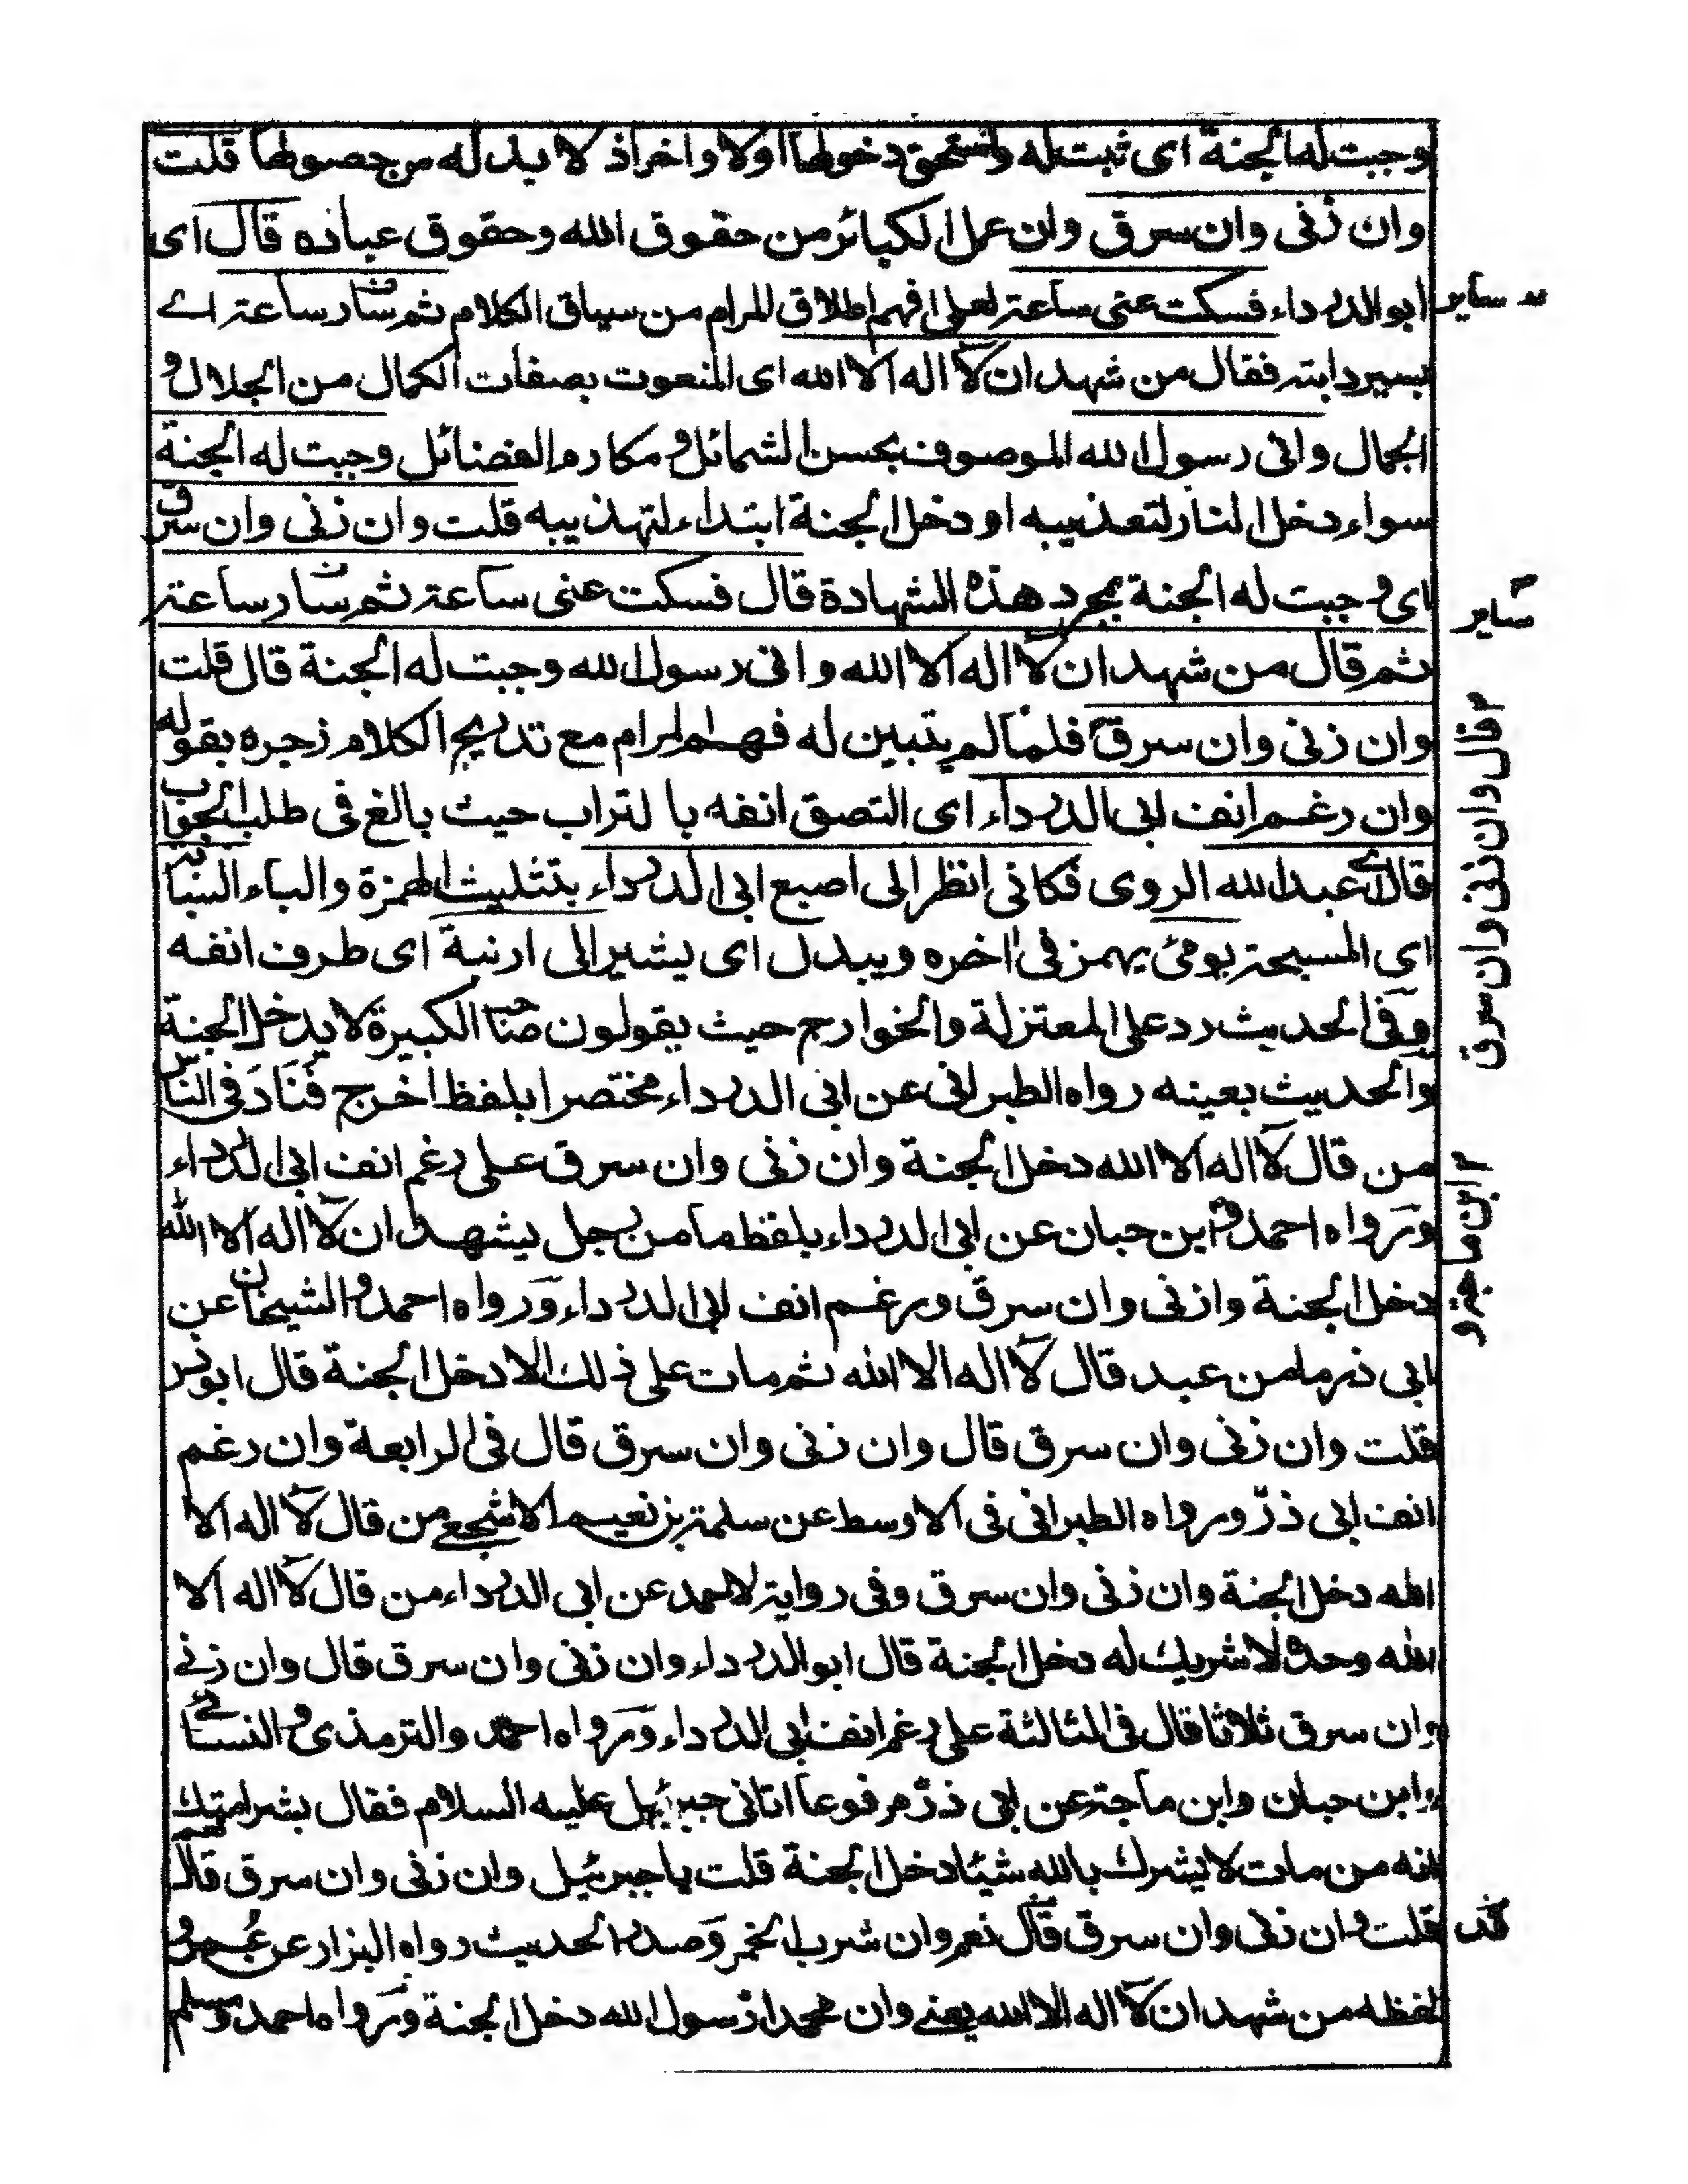 وجبت له الجنة اى ثبت له واستحق دخولها اولا واخرا اذ لا بد له من حصولها قلت
وان زنى وان سرق وان عمل الكبائر من حقوق الله وحقوق عباده قال اى
ابو الدرداء فسكت عنى ساعة لعلى افهم اطلاق المرام من سياق الكلام ثم سار ساعة اے
بسير دابته فقال من شهد ان لا اله الا الله اى المنعوت بصفات الكمال من الجلال و
الجمال وانى رسول الله الموصوف بحسن الشمائل ومكارم الفضائل وجبت له الجنة
سواء دخل النار لتعذيبه او دخل الجنة ابتداء لتهذيبه قلت وان زنى وان سرق
اى وجبت له الجنة بمجرد هذه الشهادة قال فسكت عنى ساعة ثم سار ساعة
ثم قال من شهد ان لا اله الا الله وانى رسول الله وجبت له الجنة قال قلت
وان زنى وان سرق فلما لم يتبين له فهم المرام مع تدريج الكلام زجره بقوله
وان رغم انف ابى الدرداء اى التصق انفه بالتراب حيث بالغ فى طلب الجواب
قال اے عبد الله الروى فكانى انظر الى اصبع ابى الدرداء بتثليث الهمزة والباء السبابة
اى المسبحة يومئ يهمز فى اخره ويبدل اى يشير الى ارنبة اى طرف انفه
وفى الحديث رد على المعتزلة والخوارج حيث يقولون صاحب الكبيرة لا يدخل الجنة
والحديث بعينه رواه الطبرانى عن ابى الدرداء مختصرا بلفظ اخرج فناد فى الناس
من قال لا اله الا الله دخل الجنة وان زنى وان سرق على رغم انف ابى الدرداء
ورواه احمد و ابن حبان عن ابى الدرداء بلفظ ما من رجل يشهد ان لا اله الا الله
دخل الجنة وان زنى وان سرق ورغم انف ابى الدرداء ورواه احمد والشيخان عن
ابى ذر ما من عبد قال لا اله الا الله ثم مات على ذلك الا دخل الجنة قال ابوذر
قلت وان زنى وان سرق قال وان زنى وان سرق قال فى الرابعة وان رغم
انف ابى ذر ورواه الطبرانى فى الاوسط عن سلمة بن نعيم الاشجعى من قال لا اله الا
الله دخل الجنة وان زنى وان سرق وفى رواية لاحمد عن ابى الدرداء من قال لا اله الا
الله وحده لا شريك له دخل الجنة قال ابو الدرداء وان زنى وان سرق قال وان زنے
وان سرق ثلاثا قال فى الثالثة على رغم انف ابى الدرداء ورواه احمد والترمذى والنسائے
وابن حبان وابن ماجة عن ابى ذر مرفوعا اتانى جبرئيل عليه السلام فقال بشر امتك
انه من مات لا يشرك بالله شيئا دخل الجنة قلت يا جبرئيل وان زنى وان سرق قال نعم
قلت وان زنى وان سرق قال نعم وان شرب الخمر وصدر الحديث رواه البزار عن عمر و
لفظه من شهد ان لا اله الا الله يعنے وان محمدا رسول الله دخل الجنة ورواه احمد ومسلم
ساير
ساير
قال وان زنى وان سرق
ابن ماجة و